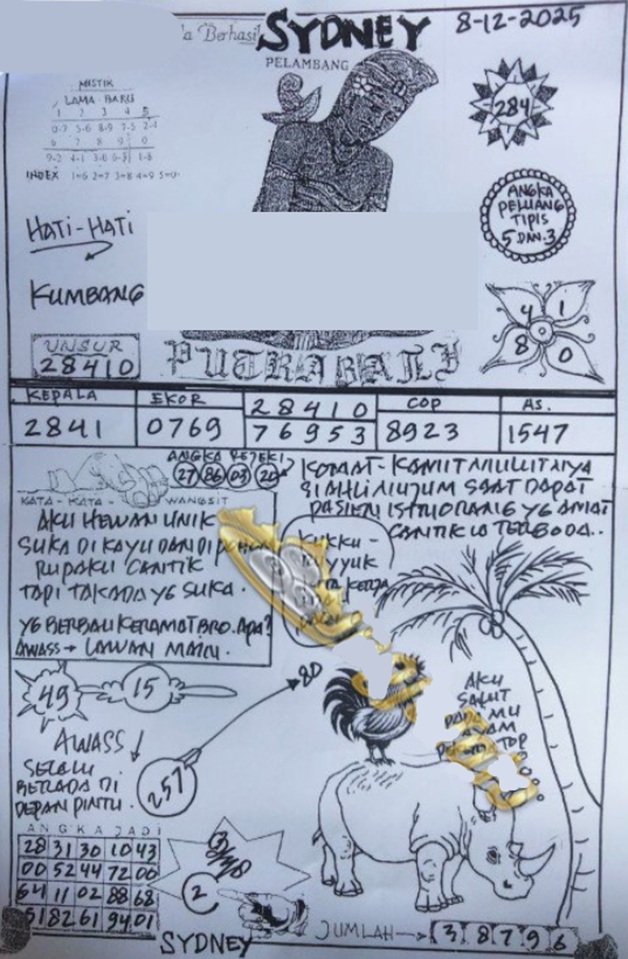 a Berhasil
SYDNEY
8-12-2025
PELAMBANG
MISTIK
LAMA - BARU
1 2 3 4 5
0-7 5-6 8-9 7-5 2-1
6 7 8 9 0
9-2 4-1 3-0 6-8 1-8
INDEX 1=6 2=7 3=8 4=9 5=0
284
ANGKA
PELUANG
TIPIS
5 DAN 3
HATI-HATI
KUMBANG
4 1
8 0
UNSUR
28410
PUTRA BALI
KEPALA EKOR 28410 COP AS.
2841 0769 76953 8923 1547
ANGKA REJEKI
27 86 03 20
KATA - KATA WANGSIT
AKU HEWAN UNIK
SUKA DI KAYU DAN DI
RUPAKU CANTIK
TAPI TAK ADA YG SUKA.
YG BERBAU KERAMAT BRO. APA?
AWASS → LAWAN MATU.
KOMAT-KAMIT MULUTNYA
SI AHLI NUJUM SAAT DAPAT
PASIEN ISTRI ORANG YG AMAT
CANTIK IA TERGODA..
KUKKU-
YYUK
KERJA
49
15
80
AWASS ↓
SELALU
BERADA DI
DEPAN PINTU.
257
AKU
SALUT
PADA MU
AYAM
TOP
ANGKA JADI
28 31 30 10 43
00 52 44 72 00
64 11 02 88 68
51 82 61 94 01
2
SYDNEY
JUMLAH → 3 8 7 9 6